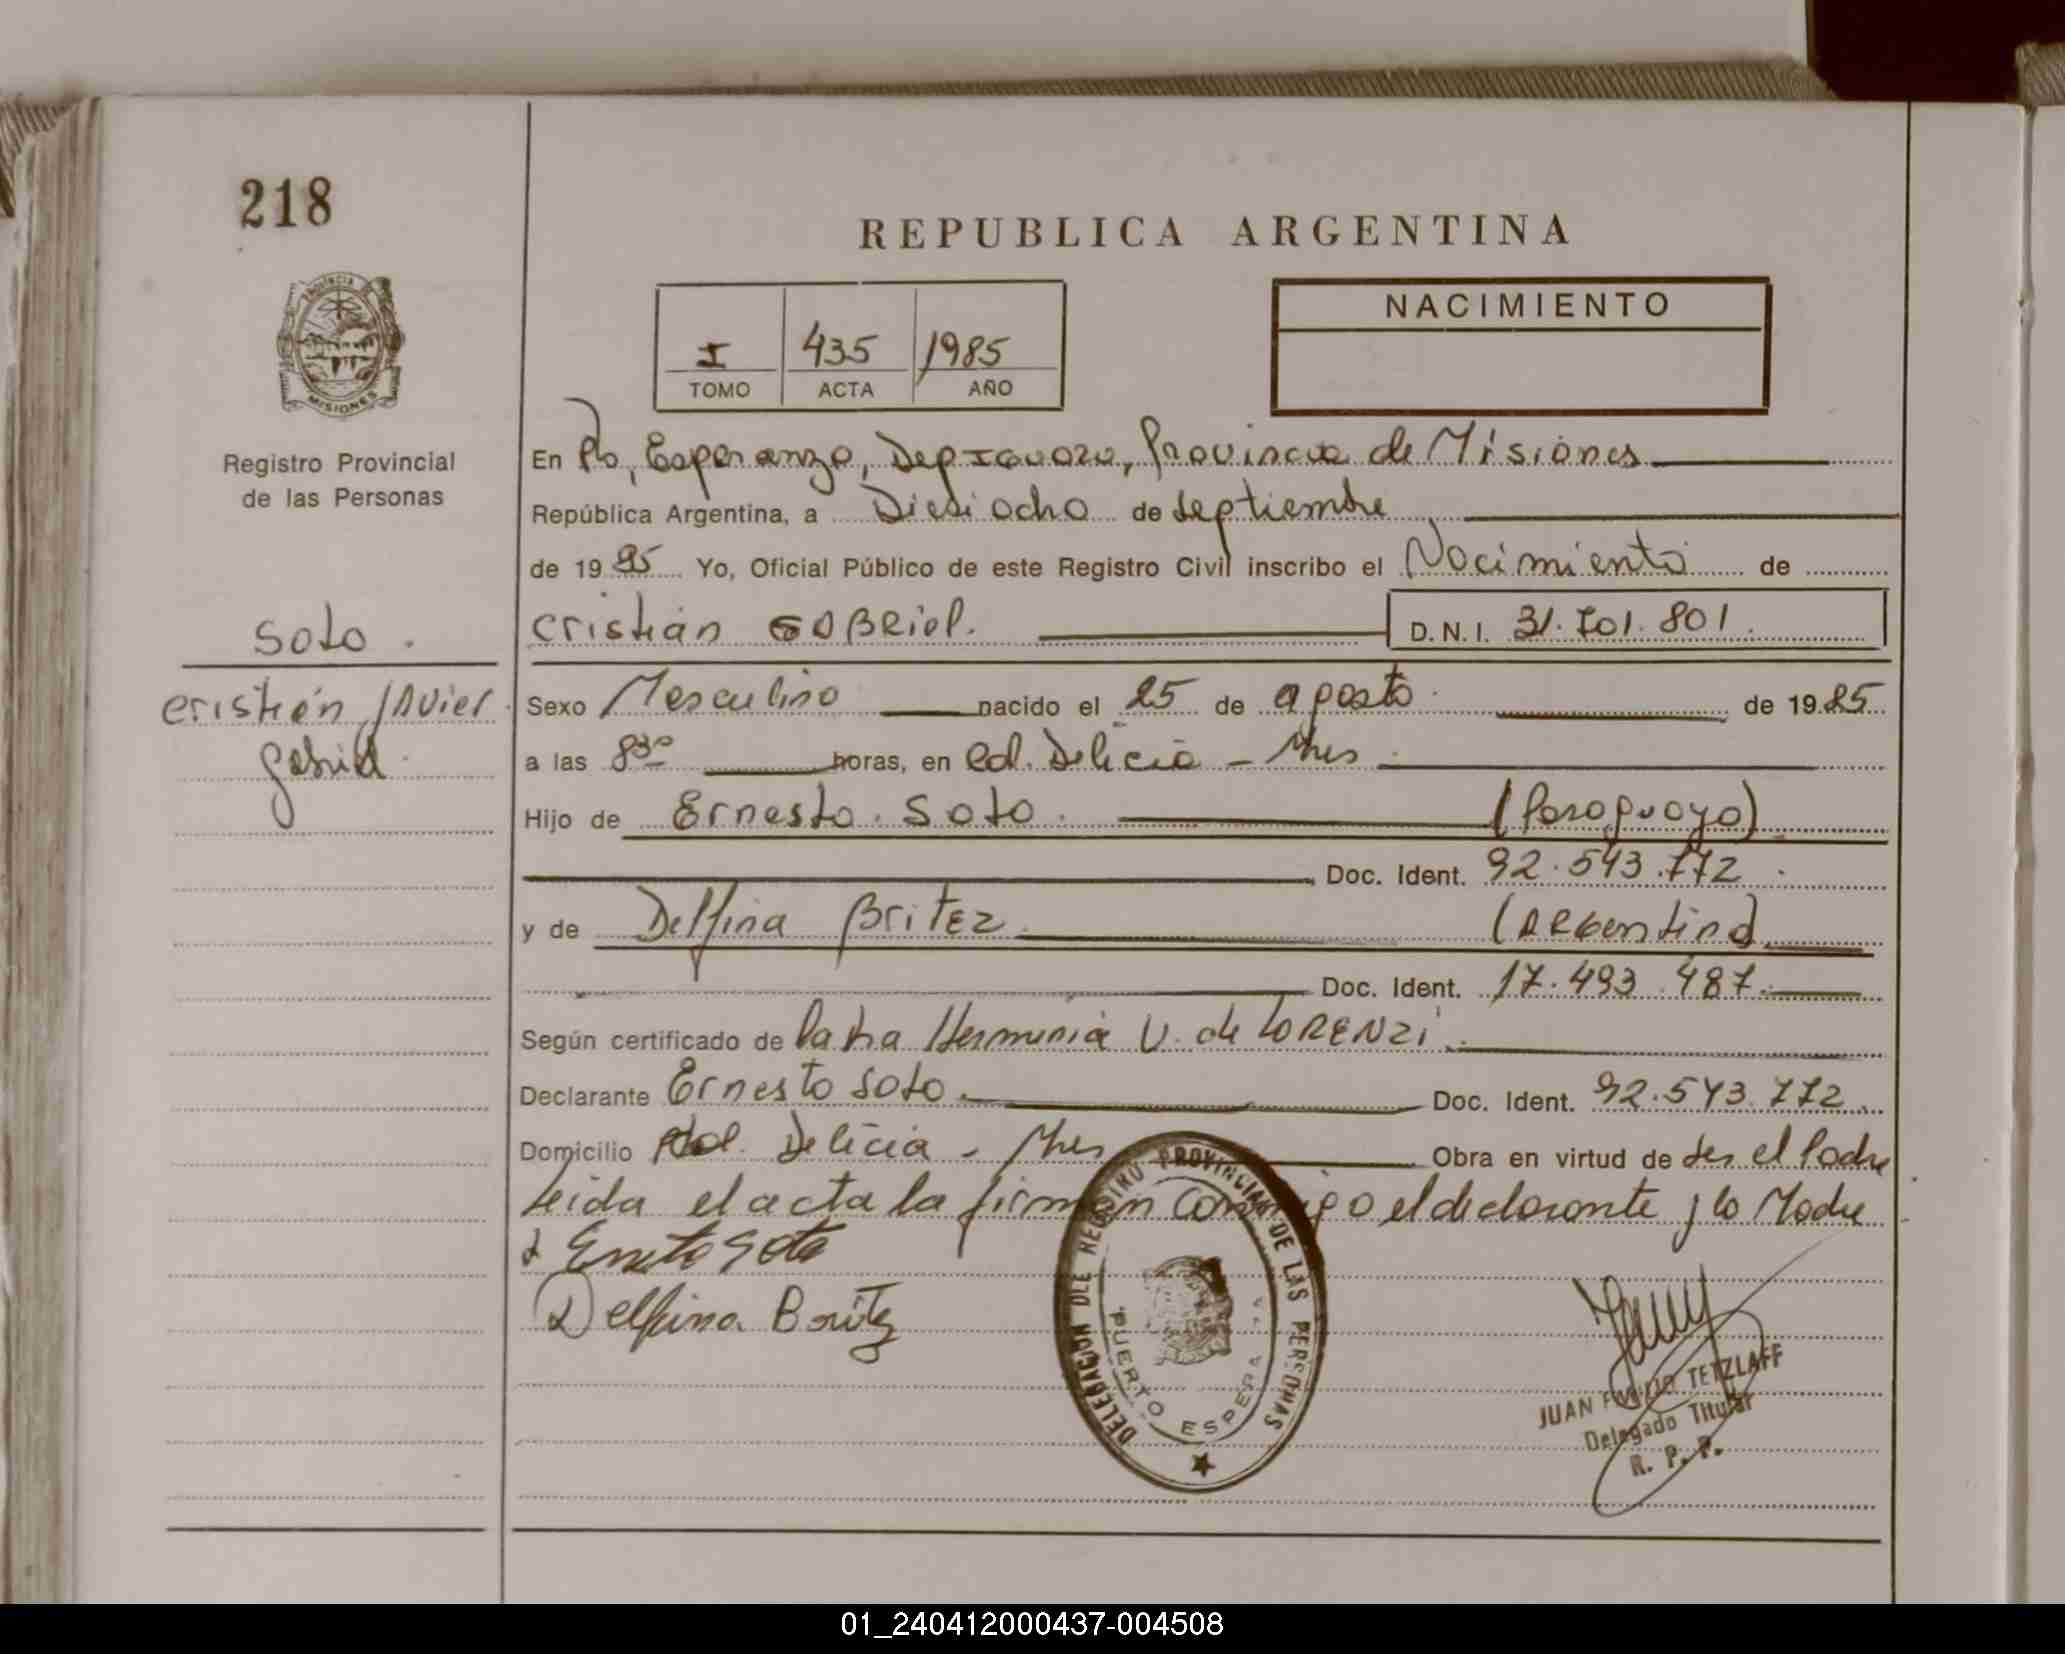 218
REPUBLICA ARGENTINA
PROVINCIA
MISIONES
Registro Provincial
de las Personas
I 435 1985
TOMO ACTA AÑO
NACIMIENTO
En Pto, Esperanza, Dep Iguazu, Provincia de Misiones
República Argentina, a Dieciocho de septiembre
de 19 85 Yo, Oficial Público de este Registro Civil inscribo el Nacimiento de
Soto.
cristian GABRiel. D.N.I. 31.701.801.
cristian Javier
gabriel.
Sexo Masculino nacido el 25 de agosto de 19 85
a las 8 30 horas, en Col. Delicia - Mnes
Hijo de Ernesto Soto. (Paraguayo)
Doc. Ident. 92.543.772
y de Delfina BRiTEz (ARgentina)
Doc. Ident. 17.493.487.
Según certificado de Patra Herminia V. de LORENZi.
Declarante Ernesto Soto. Doc. Ident. 92.543.772.
Domicilio Col. Delicia - Mnes Obra en virtud de ser el Padre
leida el acta la firman conmigo el declarante y la Madre
Ernesto Soto
Delfina Britez
DELEGACION DLE REGISTRO PROVINCIAL DE LAS PERSONAS
PUERTO ESPERANZA
JUAN TETZLAFF
Delegado Titular
R. P. P.
01_240412000437-004508